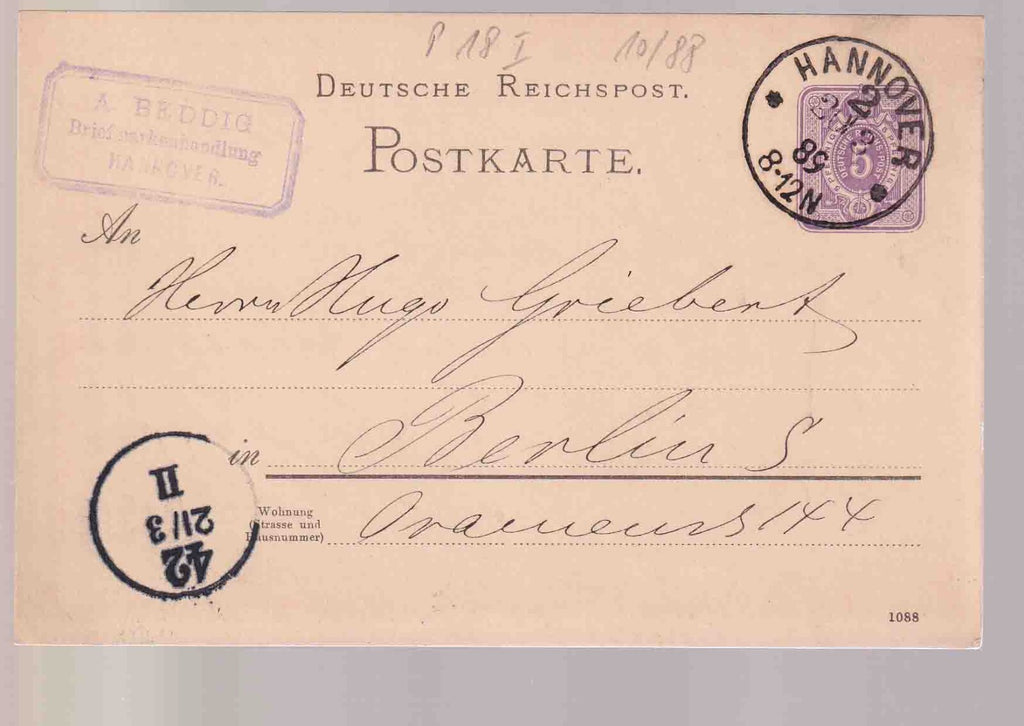 P 18 I 10/88
DEUTSCHE REICHSPOST.
POSTKARTE.
A. BEDDIG
Briefmarkenhandlung
HANNOVER.
HANNOVER
2
89
8-12N
5
An
Herrn Hugo Griebert
in Berlin S
Wohnung
(Strasse und
Hausnummer)
144
II
21/3
42
1088